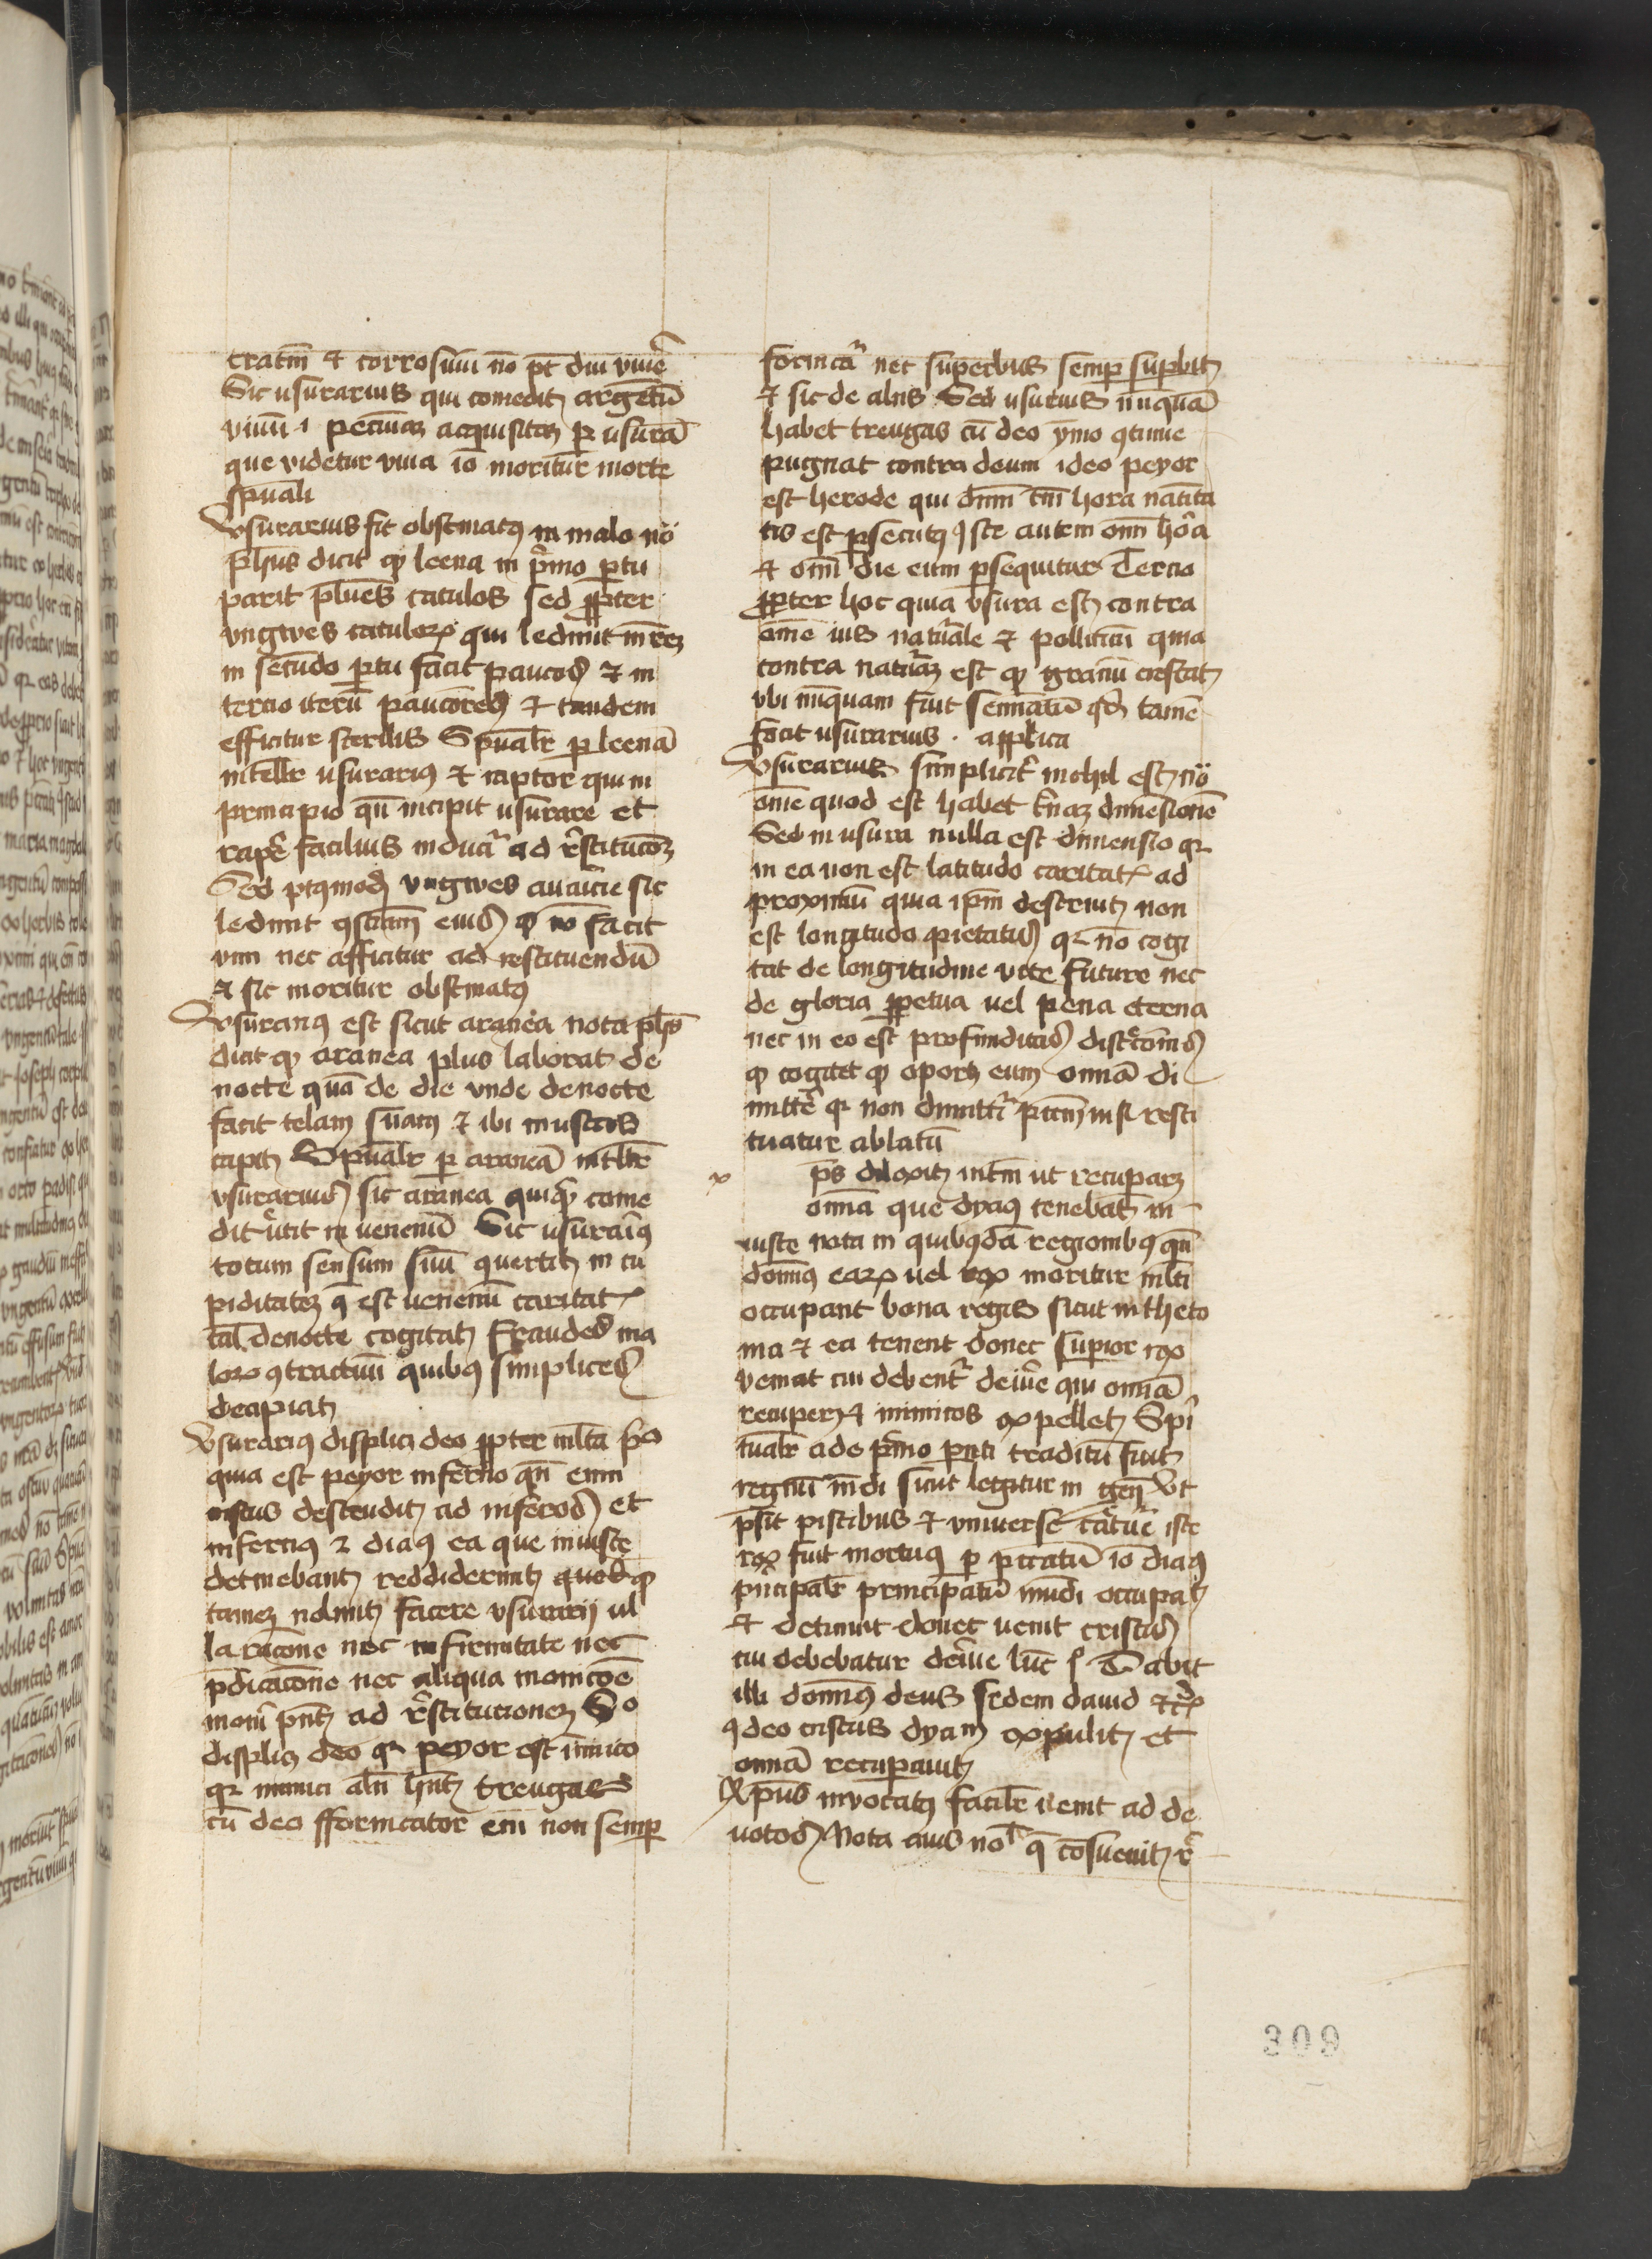 tratm̄ et corrosiuū nō pt̄ diu viuẽ
Sic usurarius qui comedit argētū
viuū .i. pecuniaꝫ acquisitaꝫ ꝑ usurā
que videtur viua io moritur morte
spūali
Usurarius fit obstinatꝰ in malo nō
phūs dicit ꝙ leena in pͥmo ꝑtu
parit plūes catulos sed ꝓpter
vngwes catuloꝝ qui ledūnt mr̄eꝫ
in secūdo ꝑtu facit paucos et in
tercio iterū pauciores et tandem
efficitur sterilis Spūalr̄ ꝑ leenā
intellr̄ usurariꝰ et raptor qui in
principio qn̄ incipit usurare et
rapẽ facilius inducͥ ad rͤstitucōꝫ
Sed vngwes auaricie sic
ledunt ꝯsciam̄ eius ꝙ nō facit
vim nec afficitur ad restituendū
et sic moritur obstinatꝰ
Usurariꝰ est sicut aranea nota phūs
dicit ꝙ aranea plus laborat de
nocte quā de die vnde de nocte
facit telam suam et ibi muscas
capit Spūalr̄ ꝑ araneā intllr̄
vsurarius sic aranea quicꝗͥd come
dit ũtit in venenū Sic usurariꝰ
totum sensum suū ꝯuertit in cu
piditateꝫ q̄ est venenū caritatꝭ
tal̄ de nocte cogitat fraudes ma
loꝝ ꝯtractuū quibꝰ simplices
decipiat
Usurariꝰ displicꝫ deo ꝓpter ml̄ta pͦ
quia est peyor inferno qn̄ enim
cristus descendit ad inferos et
infernꝰ et diaꝰ ea que iniuste
detinebant reddiderunt quod
tameꝫ nolunt facere vsurarij ul
la racōne nec infirmitate nec
p̄dicacōne nec aliqua monicōe
moueri pn̄t ad rͤstitucioneꝫ Sͦ
displicꝫ deo qꝛ peyor est inimico
qꝛ inimici aln̄ hn̄t treugas
cū deo fornicator eni non semꝑ
fornicatͥ nec superbus semꝑ suꝑbit
et sic de aliis Sed usurius nūquā
habet treugas cū deo ymo ꝯtinue
pugnat contra deum ideo peyor
est herode qui dnm̄ tm̄ hora natiuita
tis est ꝑsecutꝰ iste autem omī hora
et omī die eum ꝑsequitur Tercio
ꝓpter hoc quia vsura est contra
ome ius naturale et polliticū quia
contra naturaꝫ est ꝙ granū crescat
vbi nūquam fuit semīatū qd̄ tamē
facit usurarius . applica
Usurarius simplicitͬ nichil est nō
ome quod est habet tͥnaꝫ dimēsionē
Sed in usura nulla est dimensio qꝛ
in ea non est latitudo caritatꝭ ad
proximū quia ip̄m destruit non
est longitudo pietatis qꝛ nō cogi
tat de longitudine vite future nec
de gloria ꝑpetua uel pena eterna
nec in eo est profunditas discrecōis
ꝙ cogitet ꝙ oportꝫ eum omnia di
mittẽ qꝛ non dimittitͬ pc̄cm̄ nisi resti
tuatur ablatū
xps dilexit intm̄ ut recuparꝫ
omnia que dyaꝰ tenebat in
iuste nota in quibꝰdā regionibꝰ qn̄
domīꝰ eaꝝ uel rex moritur ml̄ti
occupant bona regis sicut in theto
nia et ea tenent donec suꝑior rex
veniat cui debentͬ deiũe qui omnia
recuperꝫ et inimicos expellet Spi
tualr̄ ade pͥmo pnti traditū fuit
regnū mūdi sicut legitur in gen̄ Ut
p̄sit piscibus et vniuerse cͣture iste
rex fuit mortuꝰ ꝑ pctatū io diaꝰ
pncipalr̄ principatū mūdi occupat
et detinuit donec uenit cristus
cui debebatur deiũe luc̄ Dabit
illi dominꝰ deus sedem dauid etcͣ
qͥ deo cristus dyam expulit et
omnia recuperauit
Xpūs invocatꝰ facilr̄ uenit ad de
uotos Nota auis no q̄ cōsueuit
309